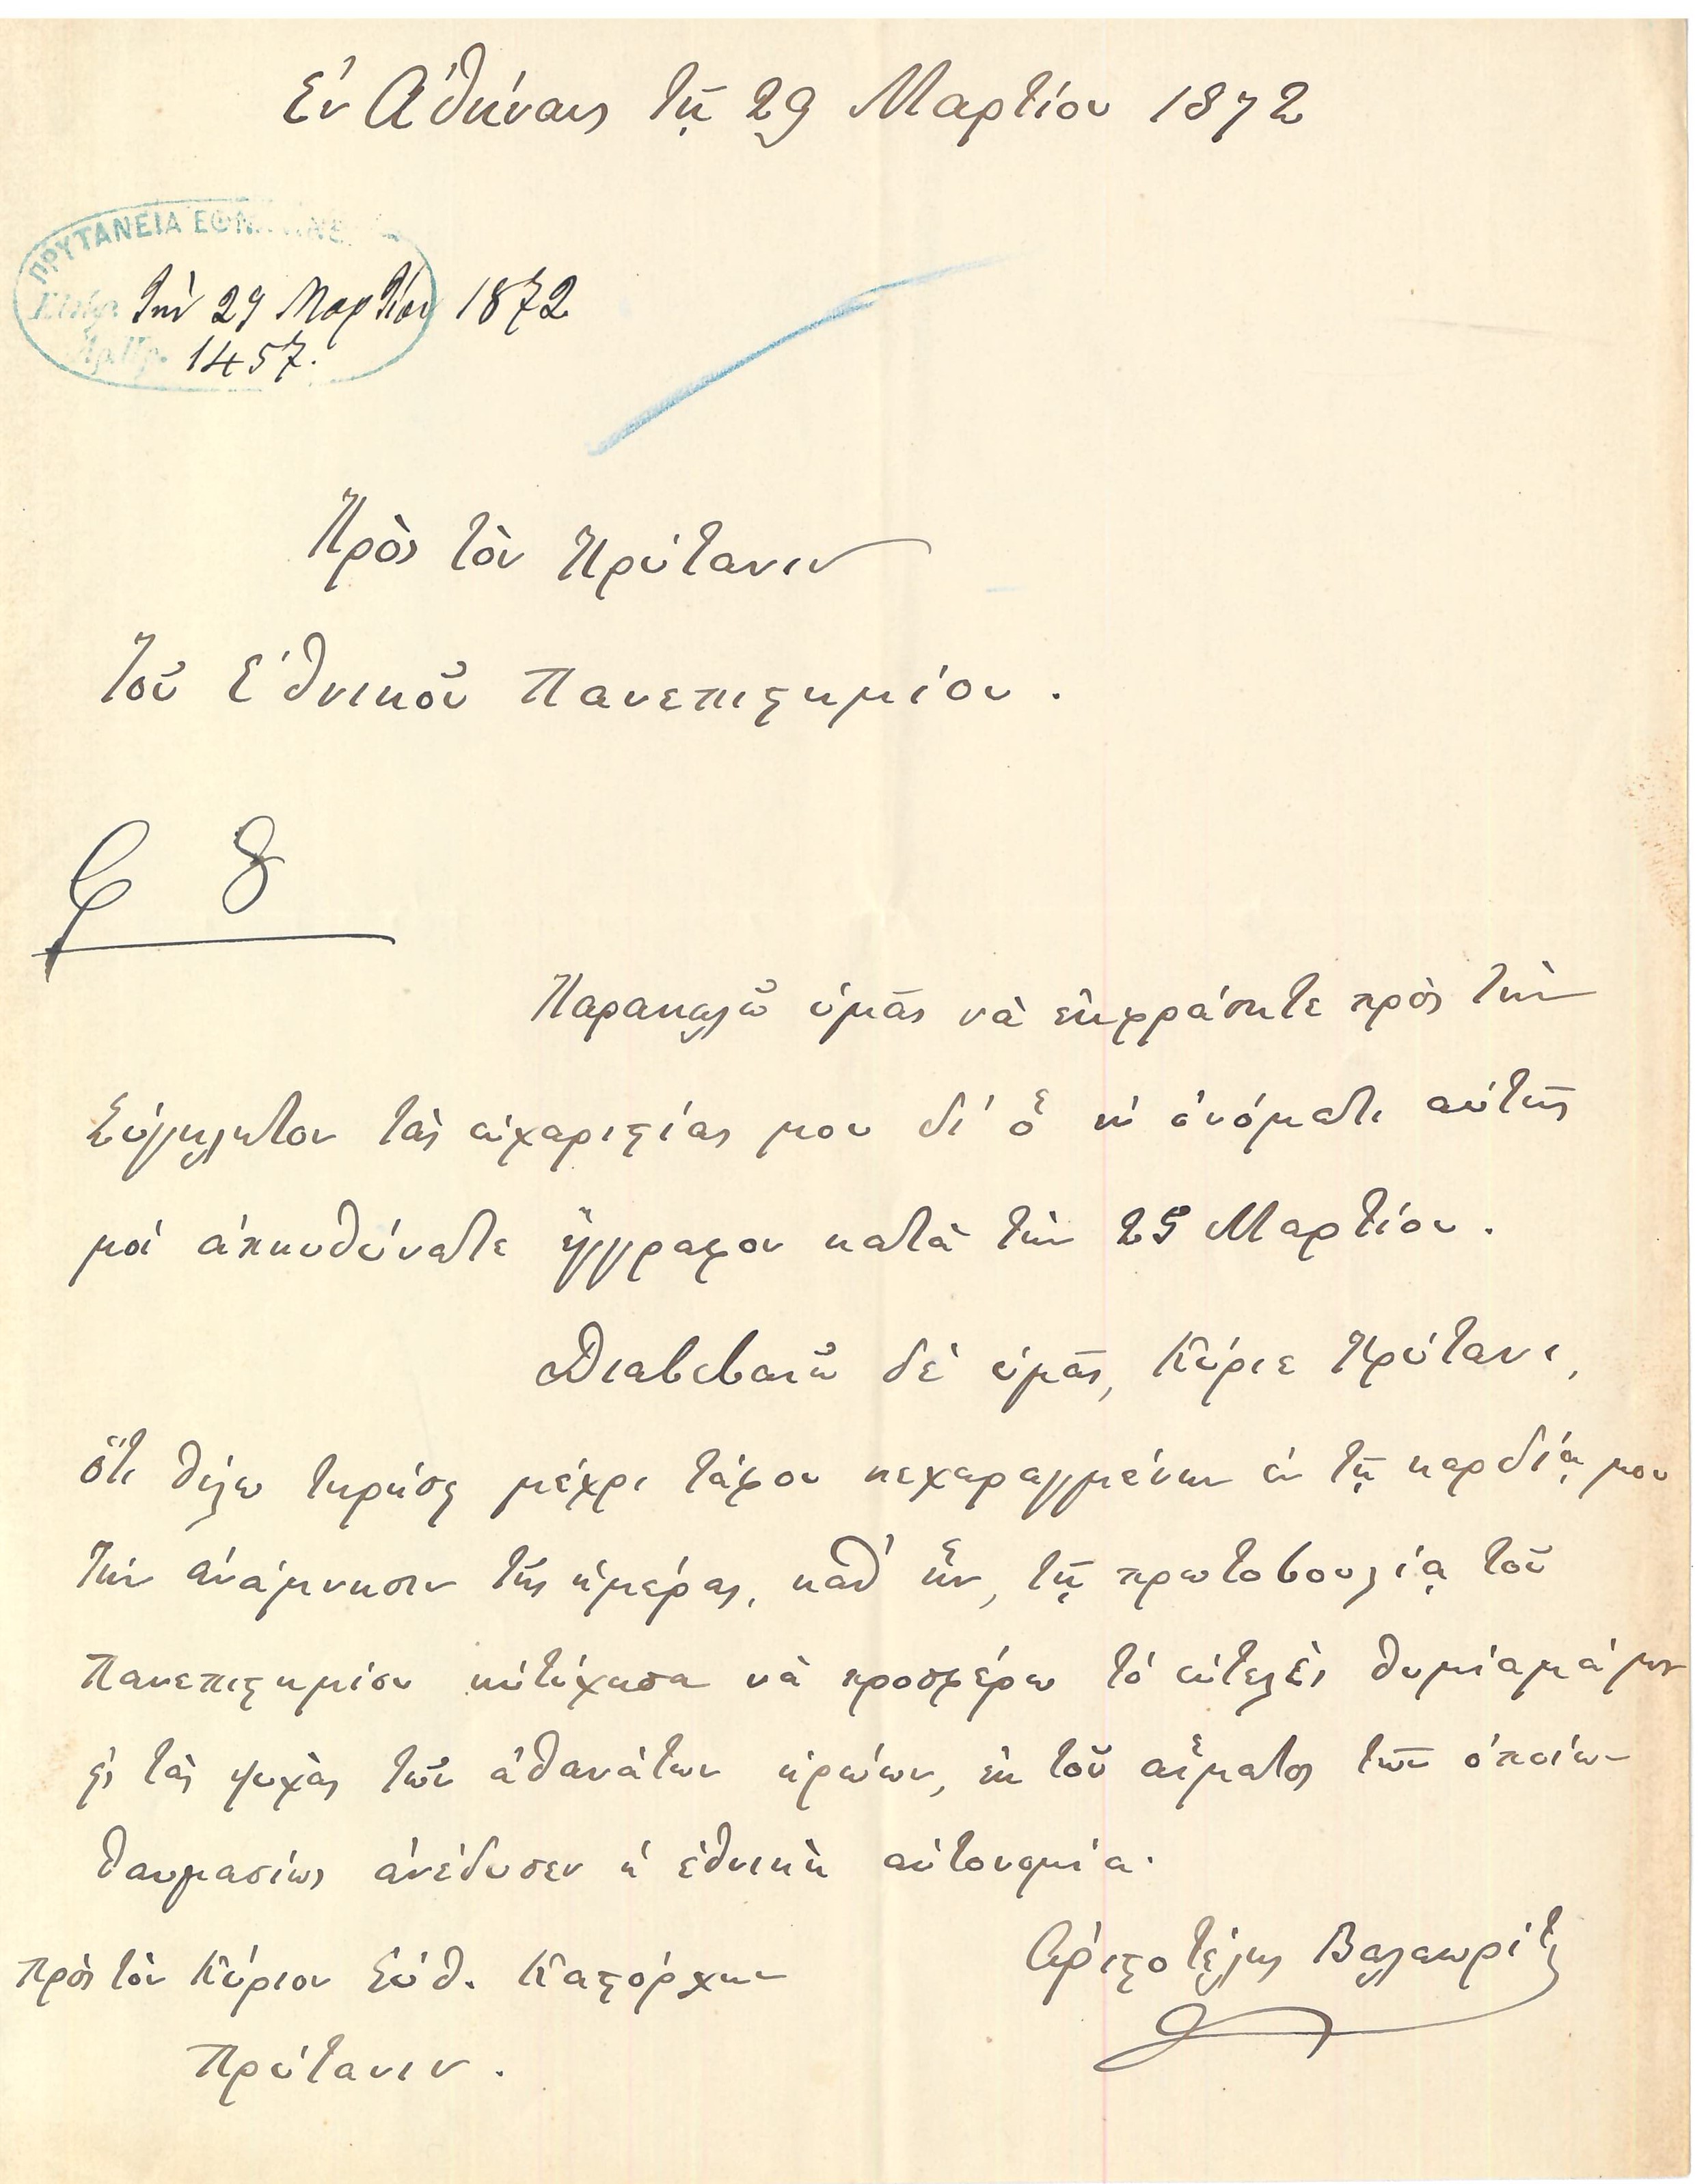 Ἐν Ἀθήναις τῇ 29 Μαρτίου 1872
ΠΡΥΤΑΝΕΙΑ
τὴν 29 Μαρτίου 1872
Ἀρ. Πρ. 1457.
Πρὸς τὸν Πρύτανιν
τοῦ Ἐθνικοῦ Πανεπιςημίου.
8
Παρακαλῶ ὑμᾶς νὰ ἐκφράσητε πρὸς τὴν
Σύγκλητον τὰς εὐχαριςίας μου δι' ὃ ἐν ὀνόματι αὐτῆς
μοὶ ἀπηυθύνατε ἔγγραφον κατὰ τὴν 25 Μαρτίου.
Διαβεβαιῶ δὲ ὑμᾶς, Κύριε Πρύτανι,
ὅτι θέλω τηρήσῃ μέχρι τάφου κεχαραγμένην ἐν τῇ καρδίᾳ μου
τὴν ἀνάμνησιν τῆς ἡμέρας, καθ' ἣν, τῇ πρωτοβουλίᾳ τοῦ
Πανεπιςημίου ηὐτύχησα νὰ προσφέρω τὸ εὐτελὲς θυμίαμά μου
εἰς τὰς ψυχὰς τῶν ἀθανάτων ἡρώων, ἐκ τοῦ αἵματος τῶν ὁποίων
θαυμασίως ἀνέδυσεν ἡ ἐθνικὴ αὐτονομία.
Ἀριςοτέλης Βαλαωρίτης
Πρὸς τὸν Κύριον Εὐθ. Καςόρχην
Πρύτανιν.